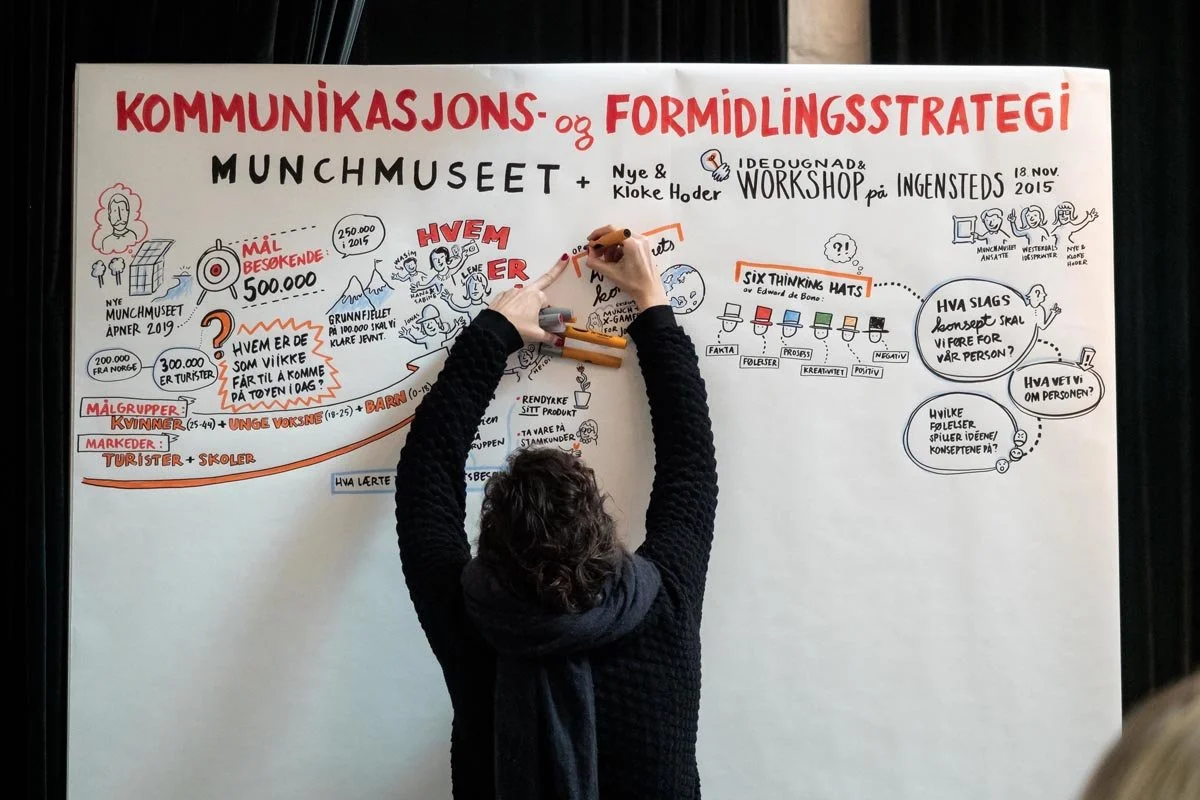 KOMMUNIKASJONS- og FORMIDLINGSSTRATEGI
MUNCHMUSEET + Nye & Kloke Hoder
IDEDUGNAD &
WORKSHOP på INGENSTEDS
18 NOV.
2015
NYE
MUNCHMUSEET
ÅPNER 2019
MÅL
BESØKENDE:
500.000
250.000
i 2015
GRUNNFJELLET
PÅ 100.000 SKAL VI
KLARE JEVNT.
200.000
FRA NORGE
300.000
ER TURISTER
?
HVEM ER DE
SOM VI IKKE
FÅR TIL Å KOMME
PÅ TØYEN I DAG?
MÅLGRUPPER:
KVINNER (25-49) + UNGE VOKSNE (18-25) + BARN
MARKEDER:
TURISTER + SKOLER
HVEM
ER
WASIM
LENE
HEIDI
MUNCH
X-GAM
FOR
RENDYRKE
SITT PRODUKT
TA VARE PÅ
STAMKUNDER
HVA LÆRTE
SIX THINKING HATS
av Edward de Bono:
?!
FAKTA
FØLELSER
PROSESS
KREATIVITET
POSITIV
NEGATIV
MUNCHMUSEET
ANSATTE
WESTERDALS
IDESPRINTER
NYE &
KLOKE
HODER
HVA SLAGS
konsept SKAL
VI FØRE FOR
VÅR PERSON?
?
!
HVA VET VI
OM PERSONEN?
HVILKE
FØLELSER
SPILLER IDÉENE/
KONSEPTENE PÅ?